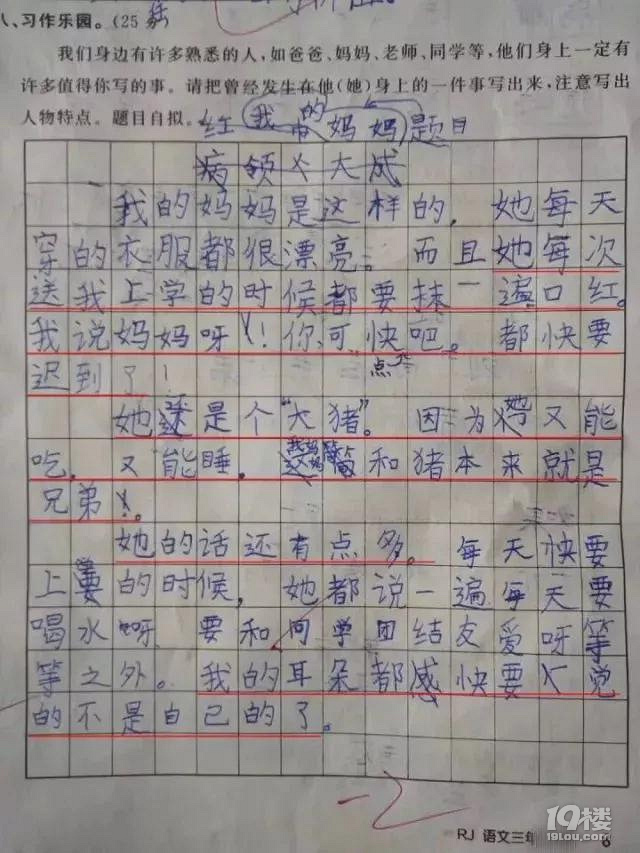 八、习作乐园。(25分)
我们身边有许多熟悉的人,如爸爸、妈妈、老师、同学等,他们身上一定有
许多值得你写的事。请把曾经发生在他(她)身上的一件事写出来,注意写出
人物特点。题目自拟。
红 我的妈妈 题目
大成
我的妈妈是这样的,她每天
穿的衣服都很漂亮。而且她每次
送我上学的时候都要抹一遍口红。
我说妈妈呀!你可快点吧。都快要
迟到了!
她还是个"大猪"。因为她又能
吃,又能睡,和猪本来就是
兄弟。
她的话还有点多。每天快要
上学的时候,她都说一遍每天要
喝水呀 要和同学团结友爱呀等
等之外。我的耳朵都感快要觉
的不是自己的了。
RJ 语文三年
19楼
19lou.com